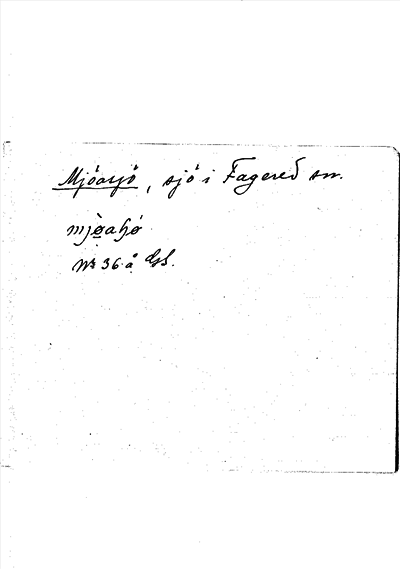 Mjöasjö, sjö i Fagered sn.
mjø̀aɧø
Nr 36 å GS.